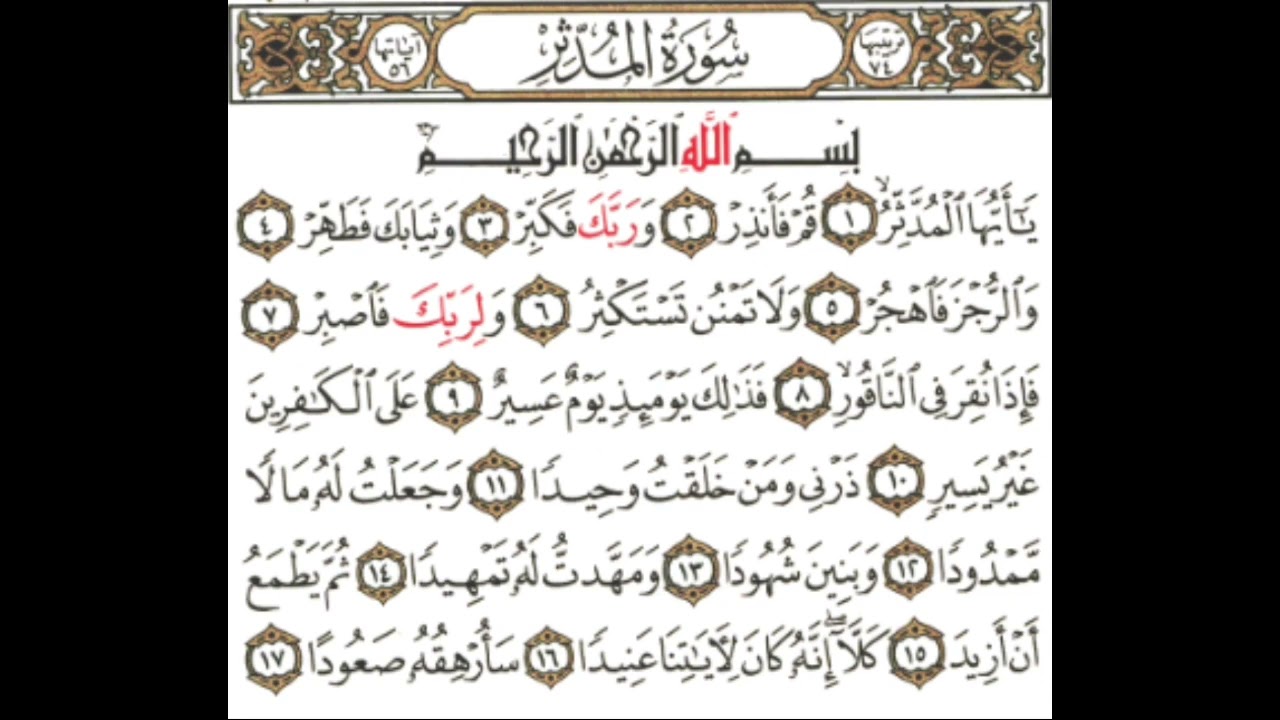 ترتيبها ٧٤ سُورَةُ المُدَّثِّرِ آياتها ٥٦
بِسْمِ ٱللَّهِ ٱلرَّحْمَٰنِ ٱلرَّحِيمِ
يَٰٓأَيُّهَا ٱلْمُدَّثِّرُ ١ قُمْ فَأَنذِرْ ٢ وَرَبَّكَ فَكَبِّرْ ٣ وَثِيَابَكَ فَطَهِّرْ ٤
وَٱلرُّجْزَ فَٱهْجُرْ ٥ وَلَا تَمْنُن تَسْتَكْثِرُ ٦ وَلِرَبِّكَ فَٱصْبِرْ ٧
فَإِذَا نُقِرَ فِى ٱلنَّاقُورِ ٨ فَذَٰلِكَ يَوْمَئِذٍ يَوْمٌ عَسِيرٌ ٩ عَلَى ٱلْكَٰفِرِينَ
غَيْرُ يَسِيرٍ ١٠ ذَرْنِى وَمَنْ خَلَقْتُ وَحِيدًا ١١ وَجَعَلْتُ لَهُۥ مَالًا
مَّمْدُودًا ١٢ وَبَنِينَ شُهُودًا ١٣ وَمَهَّدتُّ لَهُۥ تَمْهِيدًا ١٤ ثُمَّ يَطْمَعُ
أَنْ أَزِيدَ ١٥ كَلَّآ ۖ إِنَّهُۥ كَانَ لِـَٔايَٰتِنَا عَنِيدًا ١٦ سَأُرْهِقُهُۥ صَعُودًا ١٧